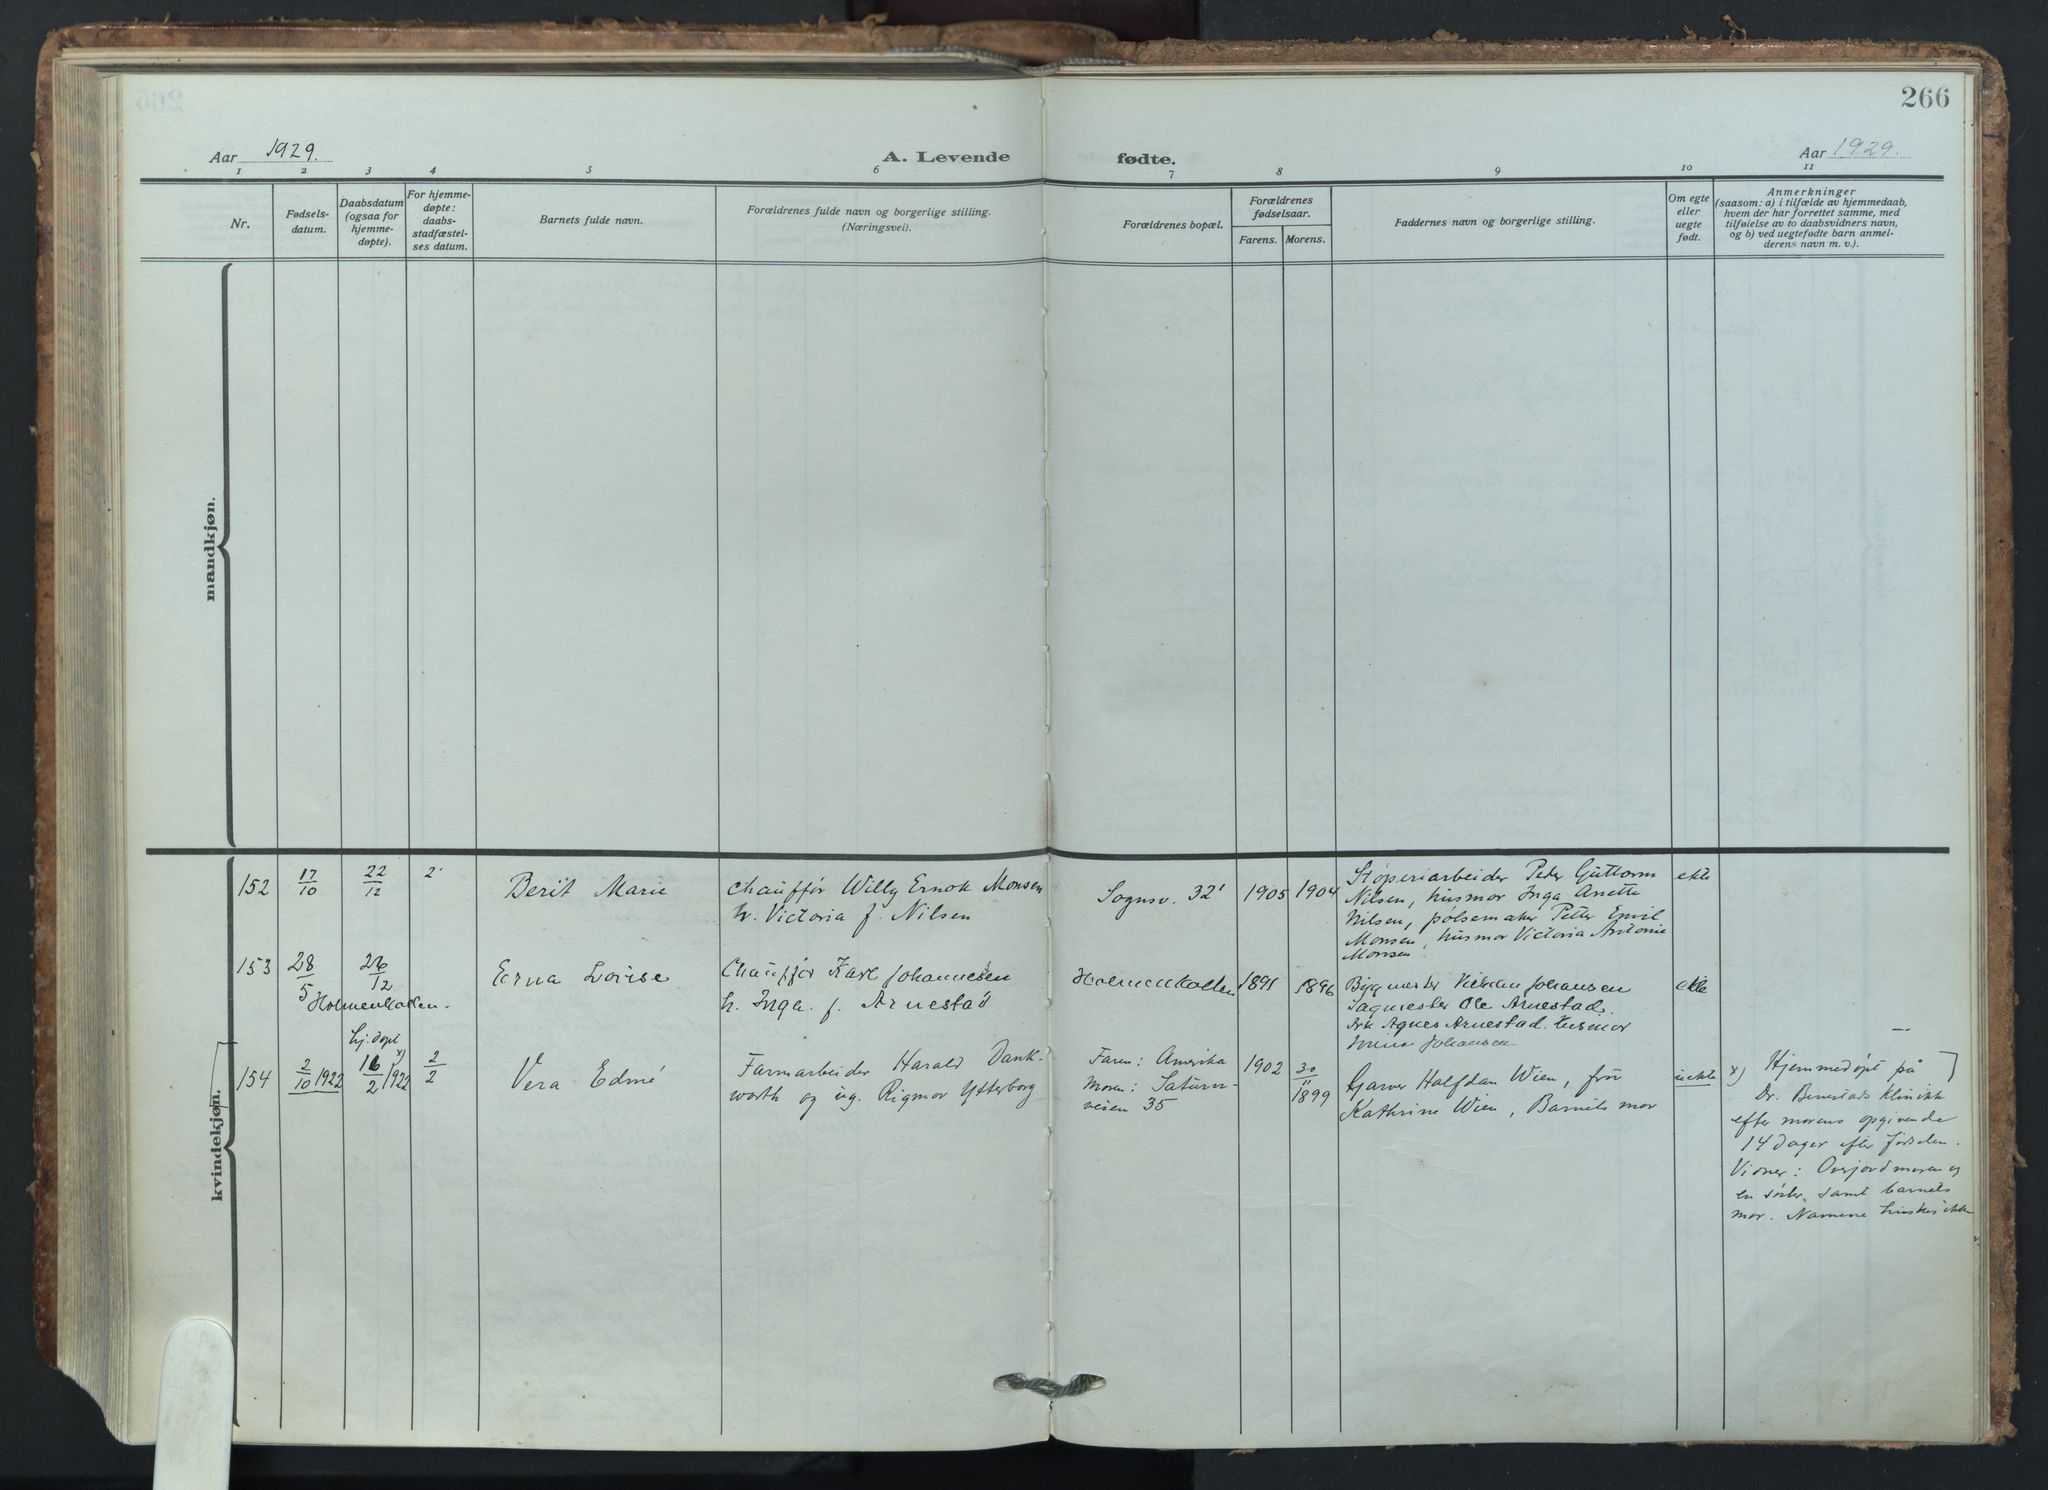 266
Aar 1929.
A. Levende fødte.
Aar 1929.
1 2 3 4 5 6 7 8 9 10 11
Nr.
Fødsels-
datum.
Daabsdatum
(ogsaa for
hjemme-
døpte).
For hjemme-
døpte:
daabs-
stadfæstel-
ses datum.
Barnets fulde navn.
Forældrenes fulde navn og borgerlige stilling.
(Næringsvei).
Forældrenes bopæl.
Forældrenes
fødselsaar.
Farens. Morens.
Faddernes navn og borgerlige stilling.
Om egte
eller
uegte
født.
Anmerkninger
(saasom: a) i tilfælde av hjemmedaab,
hvem der har forrettet samme, med
tilføielse av to daabsvidners navn,
og b) ved uegtefødte barn anmel-
derens navn m. v.).
mandkjøn.
kvindekjøn.
152
17/10
22/12
2'
Berit Marie
Chauffør Willy Ernok Monsen
h. Victoria f. Nilsen
Sognsv. 32'
1905
1904
Støperiarbeider Peder Guttorm
Nilsen, husmor Inga Anette
Nilsen, pølsemaker Petter Emil
Monsen, husmor Victoria Antonie
Monsen
ekte
153
28/5
26/12
Holmenkollen.
Erna Lovise
Chauffør Karl Johannesen
h. Inga f. Arnestad
Holmenkollen
1891
1896
Byggmester Vilhelm Johansen
Sagmester Ole Arnestad.
Frk Agnes Arnestad. Husmor
Johansen
ekte
154
2/10 1922
hj. døpt
16/2 1922 x)
2/2
Vera Edmé
Farmarbeider Harald Dank-
worth og ug. Rigmor Ytterborg
Faren: Amerika
Moren: Saturn-
veien 35
1902
30/11
1899
Garver Halfdan Wien, fru
Kathrine Wien, Barnets mor
uekte
x) Hjemmedøpt på
Dr. Benestads Klinikk
efter morens opgivende
14 dager efter fødselen.
Vidner: Overjordmoren og
en søster, samt barnets
mor. Navnene huskes ikke